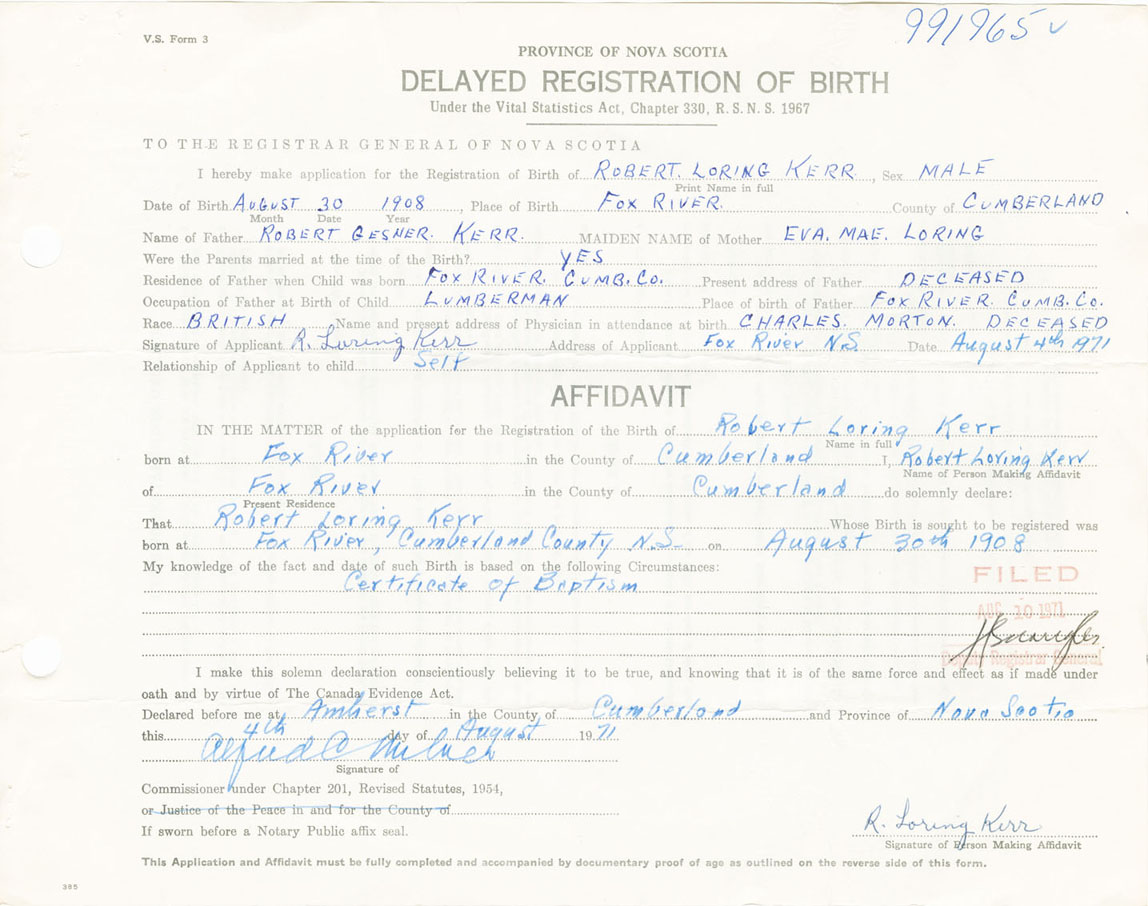 991965
V.S. Form 3
PROVINCE OF NOVA SCOTIA
DELAYED REGISTRATION OF BIRTH
Under the Vital Statistics Act, Chapter 330, R.S.N.S. 1967
TO THE REGISTRAR GENERAL OF NOVA SCOTIA
I hereby make application for the Registration of Birth of ROBERT. LORING KERR, Sex MALE
Print Name in full
Date of Birth AUGUST 30 1908, Place of Birth FOX RIVER. County of CUMBERLAND
Month Date Year
Name of Father ROBERT GESNER. KERR. MAIDEN NAME of Mother EVA. MAE. LORING
Were the Parents married at the time of the Birth? YES
Residence of Father when Child was born FOX RIVER. CUMB. CO. Present address of Father DECEASED
Occupation of Father at Birth of Child LUMBERMAN Place of birth of Father FOX RIVER. CUMB. CO.
Race BRITISH Name and present address of Physician in attendance at birth CHARLES. MORTON. DECEASED
Signature of Applicant R. Loring Kerr Address of Applicant Fox River N.S. Date August 4th 1971
Relationship of Applicant to child Self
AFFIDAVIT
IN THE MATTER of the application for the Registration of the Birth of Robert Loring Kerr
Name in full
born at Fox River in the County of Cumberland I, Robert Loring Kerr
Name of Person Making Affidavit
of Fox River in the County of Cumberland do solemnly declare:
Present Residence
That Robert Loring Kerr Whose Birth is sought to be registered was
born at Fox River, Cumberland County N.S. on August 30th 1908
My knowledge of the fact and date of such Birth is based on the following Circumstances:
Certificate of Baptism
FILED
AUG 10 1971
Deputy Registrar General
I make this solemn declaration conscientiously believing it to be true, and knowing that it is of the same force and effect as if made under
oath and by virtue of The Canada Evidence Act.
Declared before me at Amherst in the County of Cumberland and Province of Nova Scotia
this 4th day of August 1971
Alfred C
Signature of
Commissioner under Chapter 201, Revised Statutes, 1954,
or Justice of the Peace in and for the County of
If sworn before a Notary Public affix seal.
R. Loring Kerr
Signature of Person Making Affidavit
This Application and Affidavit must be fully completed and accompanied by documentary proof of age as outlined on the reverse side of this form.
385